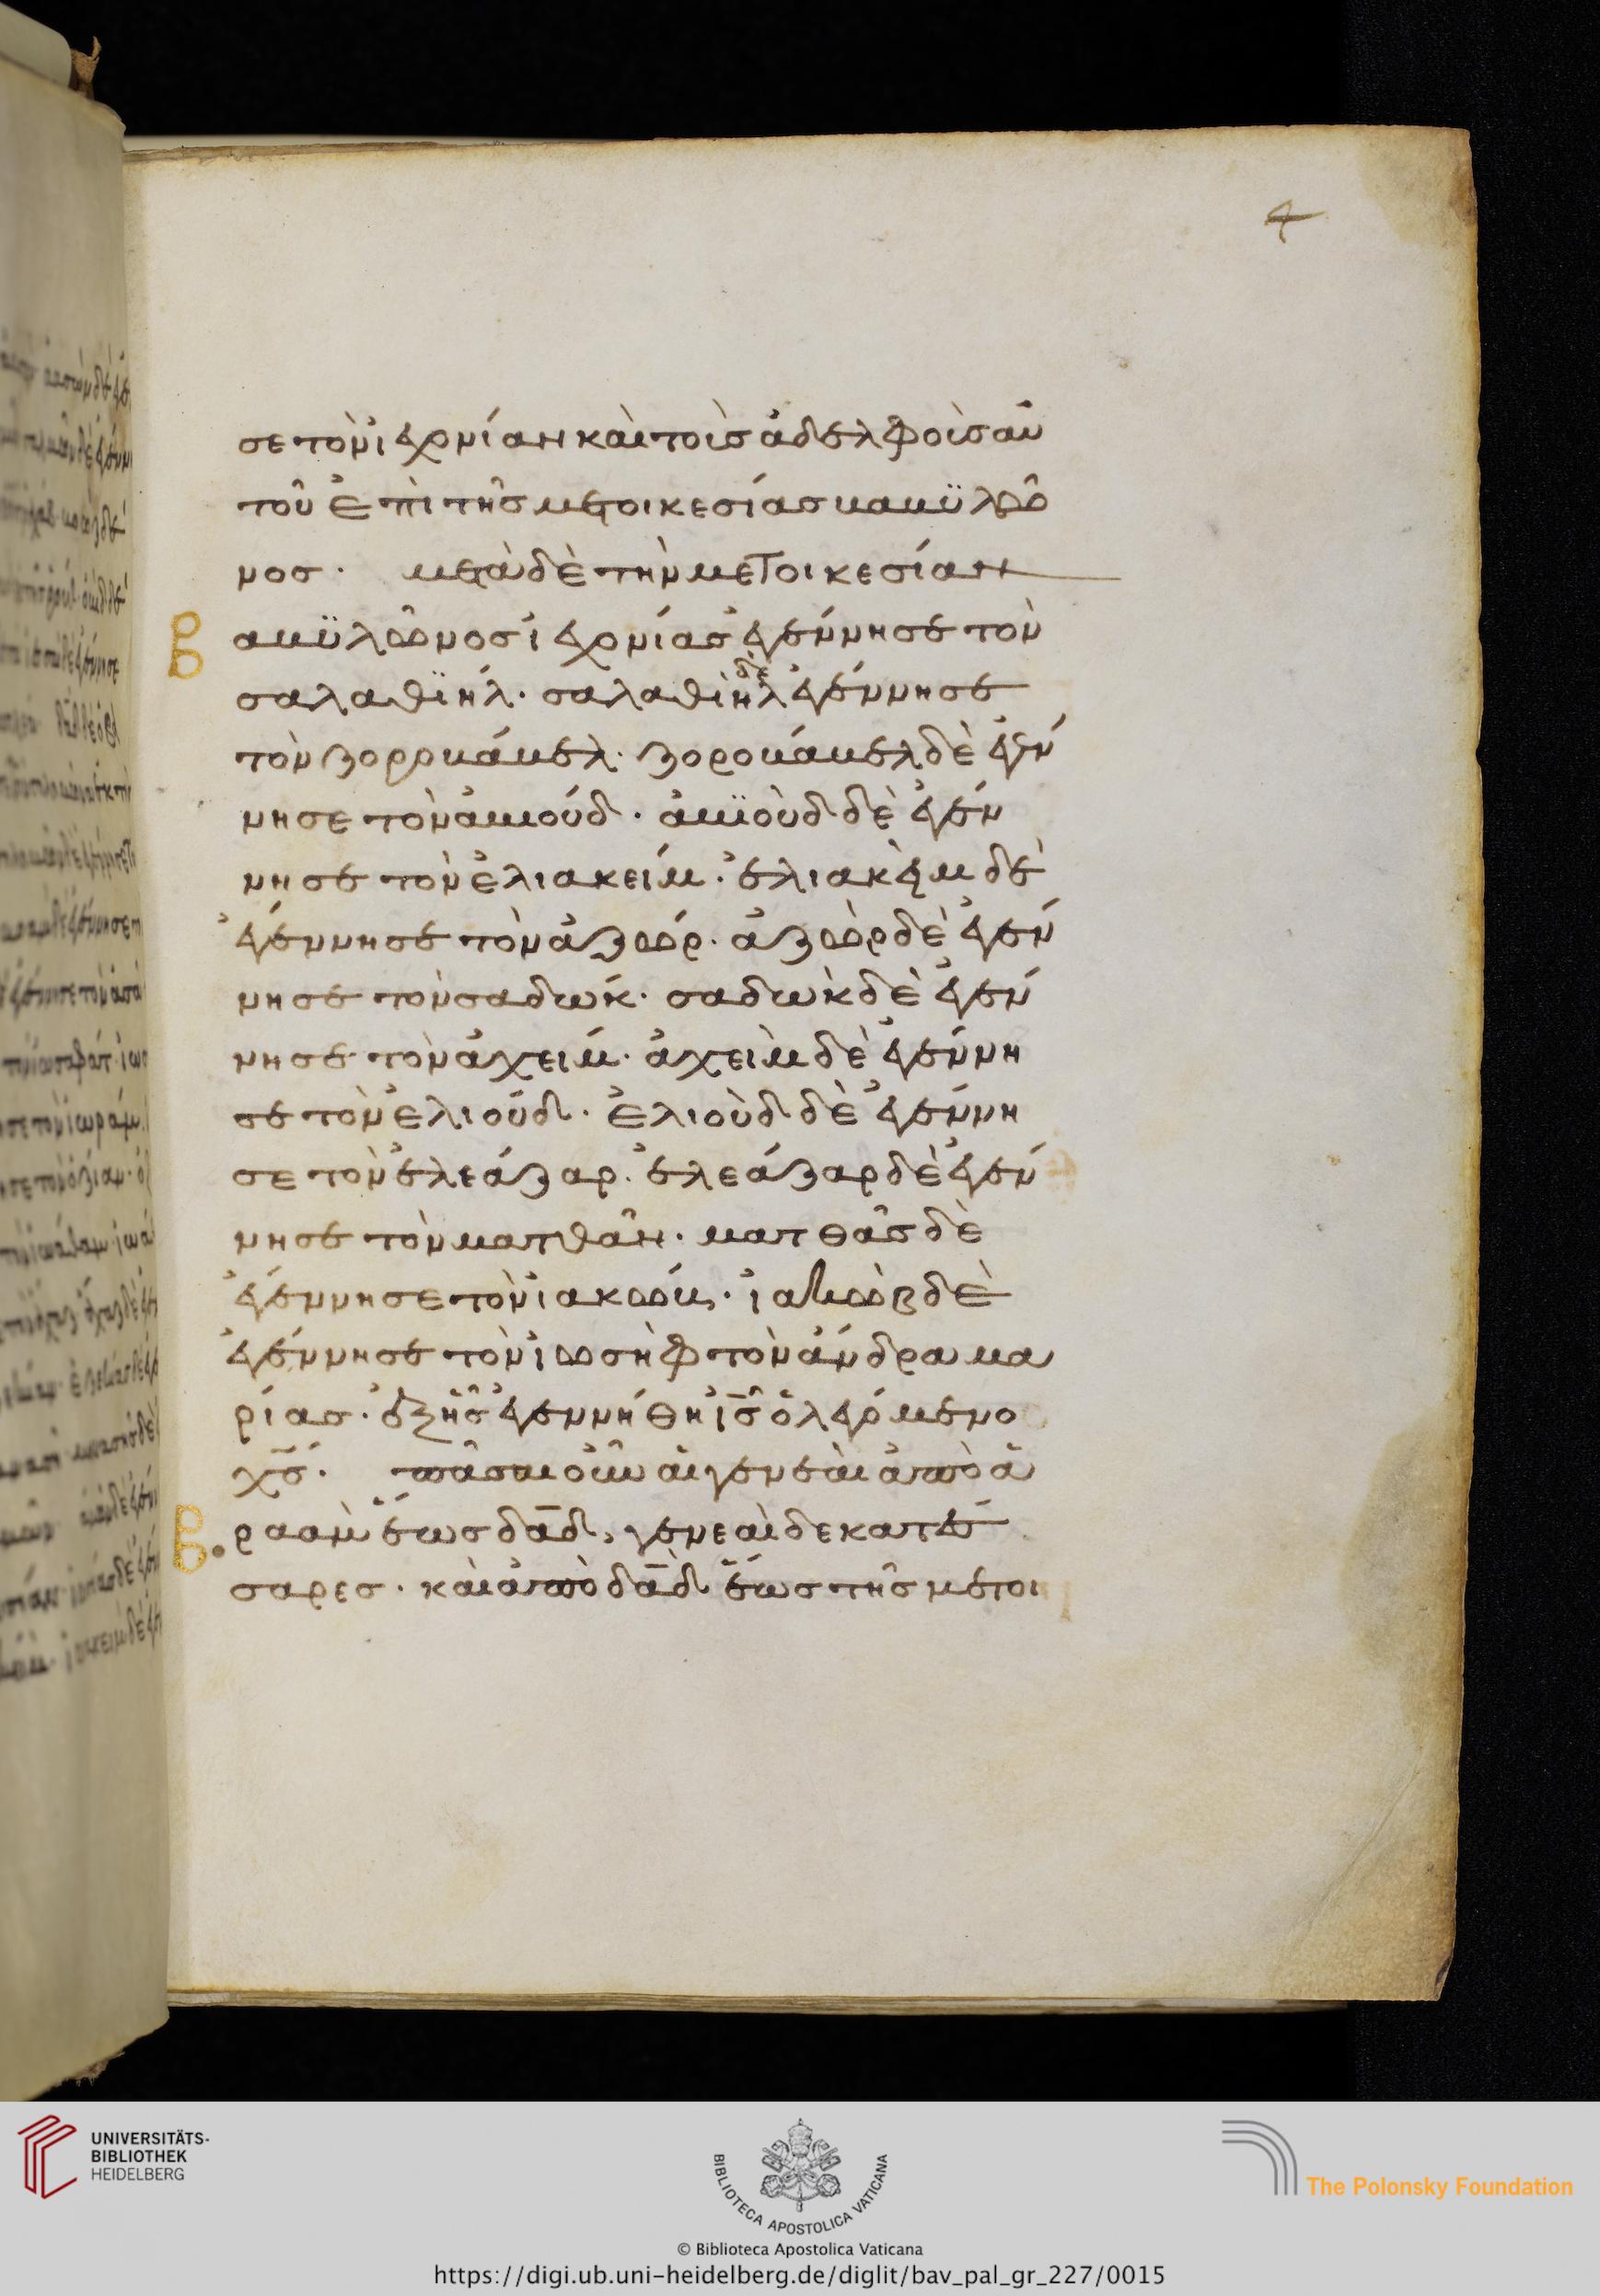 4
σε τὸν ἰεχονίαν καὶ τοὺς ἀδελφοὺς αὐ
τοῦ ἐπὶ τῆς μετοικεσίας βαβυλῶ
νος · μετὰ δὲ τὴν μετοικεσίαν
βαβϋλῶνος ἰεχονίας ἐγέννησε τὸν
σαλαθϊήλ · σαλαθιὴλ δὲ ἐγέννησε
τὸν ζοροβάβελ · ζοροβάβελ δὲ ἐγέν
νησε τὸν ἀβιούδ · ἀβϊοὺδ δὲ ἐγέν
νησε τὸν ἐλιακείμ · ἐλιακεὶμ δὲ
ἐγέννησε τὸν ἀζώρ · ἀζὼρ δὲ ἐγέν
νησε τὸν σαδώκ · σαδὼκ δὲ ἐγέν
νησε τὸν ἀχείμ · ἀχεὶμ δὲ ἐγέννη
σε τὸν ἐλιούδ · ἐλιοὺδ δὲ ἐγέννη
σε τὸν ἐλεάζαρ · ἐλεάζαρ δὲ ἐγέν
νησε τὸν ματθᾶν · ματθᾶς δὲ
ἐγέννησε τὸν ἰακώβ · ἰακὼβ δὲ
ἐγέννησε τὸν ἰωσὴφ τὸν ἄνδρα μα
ρίας · ἐξ ἧς ἐγεννήθη ἰς ὁ λεγόμενο
χς · πᾶσαι οὖν αἱ γενεαὶ ἀπὸ ἀ
βραὰμ ἕως δαδ, γενεαὶ δεκατέσ
σαρες · καὶ ἀπὸ δαδ ἕως τῆς μετοι
UNIVERSITÄTS-
BIBLIOTHEK
HEIDELBERG
BIBLIOTECA APOSTOLICA VATICANA
The Polonsky Foundation
© Biblioteca Apostolica Vaticana
https://digi.ub.uni-heidelberg.de/diglit/bav_pal_gr_227/0015